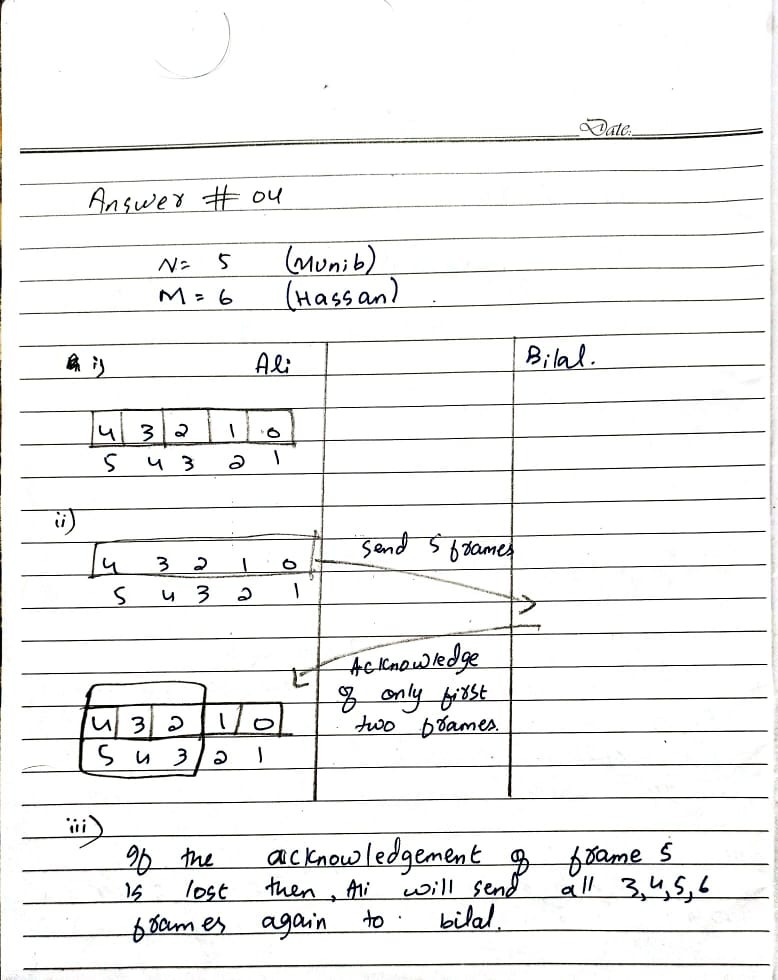 Date.
Answer # 04
N= 5 (Munib)
M = 6 (Hassan)
i) Ali Bilal.
4 3 2 1 0
5 4 3 2 1
ii)
Send 5 frames
4 3 2 1 0
5 4 3 2 1
Acknowledge
of only first
two frames.
4 3 2 1 0
5 4 3 2 1
iii)
If the acknowledgement of frame 5
is lost then, Ali will send all 3,4,5,6
frames again to bilal.